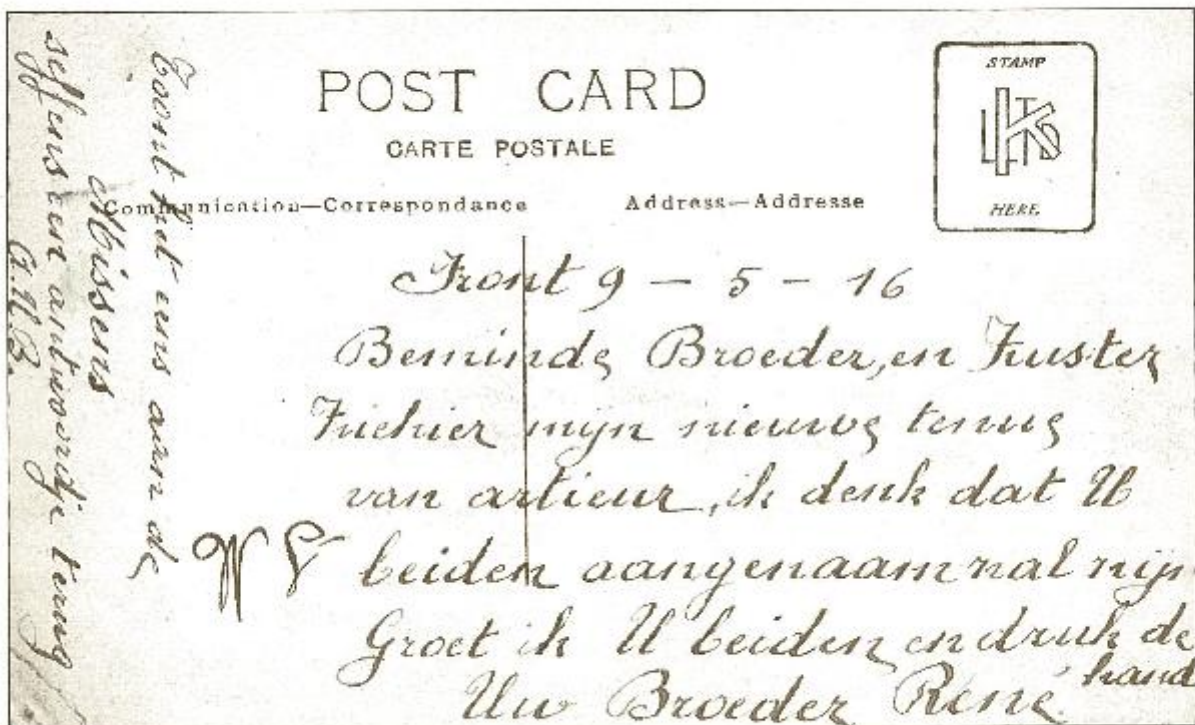 POST CARD
CARTE POSTALE
Communication—Correspondance
Address—Addresse
STAMP
HERE
Front 9 - 5 - 16
Beminde Broeder, en Zuster
Ziehier mijn nieuwe tenue
van artieur, ik denk dat U
beiden aangenaam zal zijn
Groet ik U beiden en druk de
hand
Uw Broeder René
Toont het eens aan de
Missens
seffens een antwoordje terug
A.U.B.